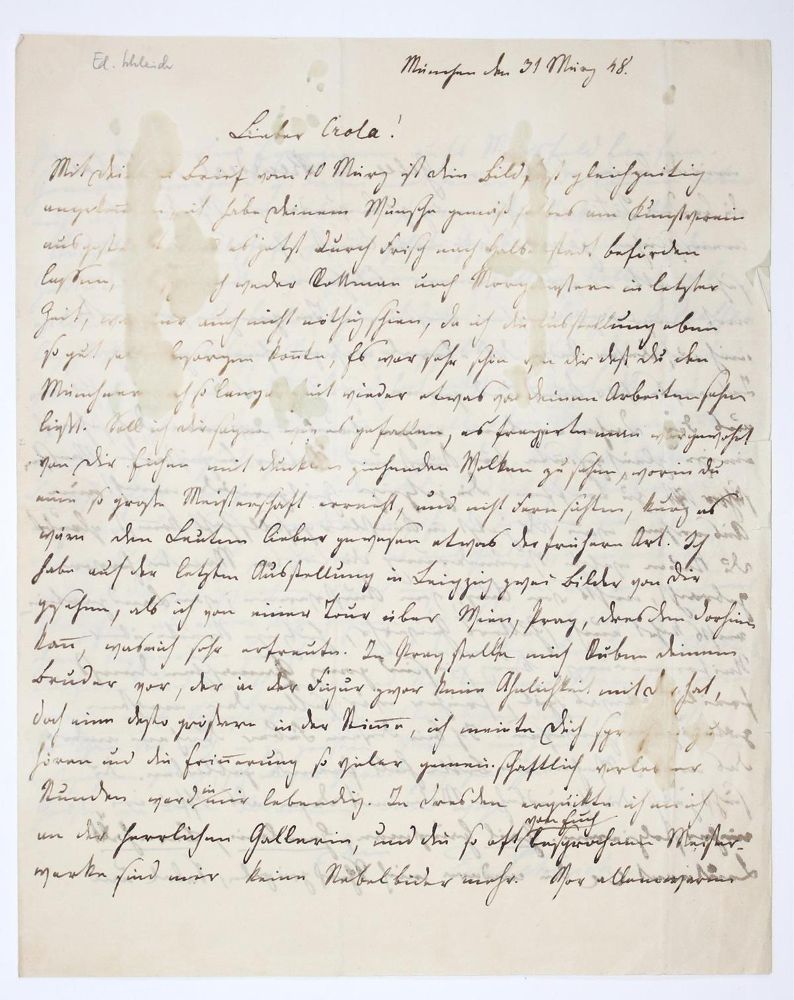 Ed. Schleich
München den 31 März 48.
Lieber Crola!
Mit Brief vom 10 März ist dein Bild, gleichzeitig
habe deinem Wunsche gemäß am Kunstverein
es jetzt durch Frisch nach befördern
lassen, weder Rottman noch Morgenstern in letzter
Zeit, auch nicht nöthig schien, da ich die Ausstellung eben
so gut besorgen konnte, Es war sehr schön von dir daß du den
Münchner so lange Zeit wieder etwas von deinen Arbeiten sehen
ließt. Soll ich dir sagen wie es gefallen, es man gewohnt
von dir Eichen mit dunklen ziehenden Wolken zu sehen, worin du
eine so große Meisterschaft erreicht, und nicht Fernsichten, kurz es
wäre den Leuten lieber gewesen etwas der frühern Art. Ich
habe auf der letzten Ausstellung in Leipzig zwei Bilder von dir
gesehen, als ich von einer Tour über Wien, Prag, Dresden dorthin
kam, was mich sehr erfreute. In Prag stellte mich Ruben deinem
Bruder vor, der in der Figur zwar keine Ähnlichkeit mit dir hat,
doch eine desto größere in der Stimme, ich meinte Dich sprechen zu
hören und die Erinnerung so vieler gemeinschaftlich verlebter
Stunden ward in mir lebendig. In Dresden erquickte ich mich
an der herrlichen Gallerie, und die so oft von Euch besprochnen Meister-
werke sind mir keine Nebelbilder mehr. Vor allem waren